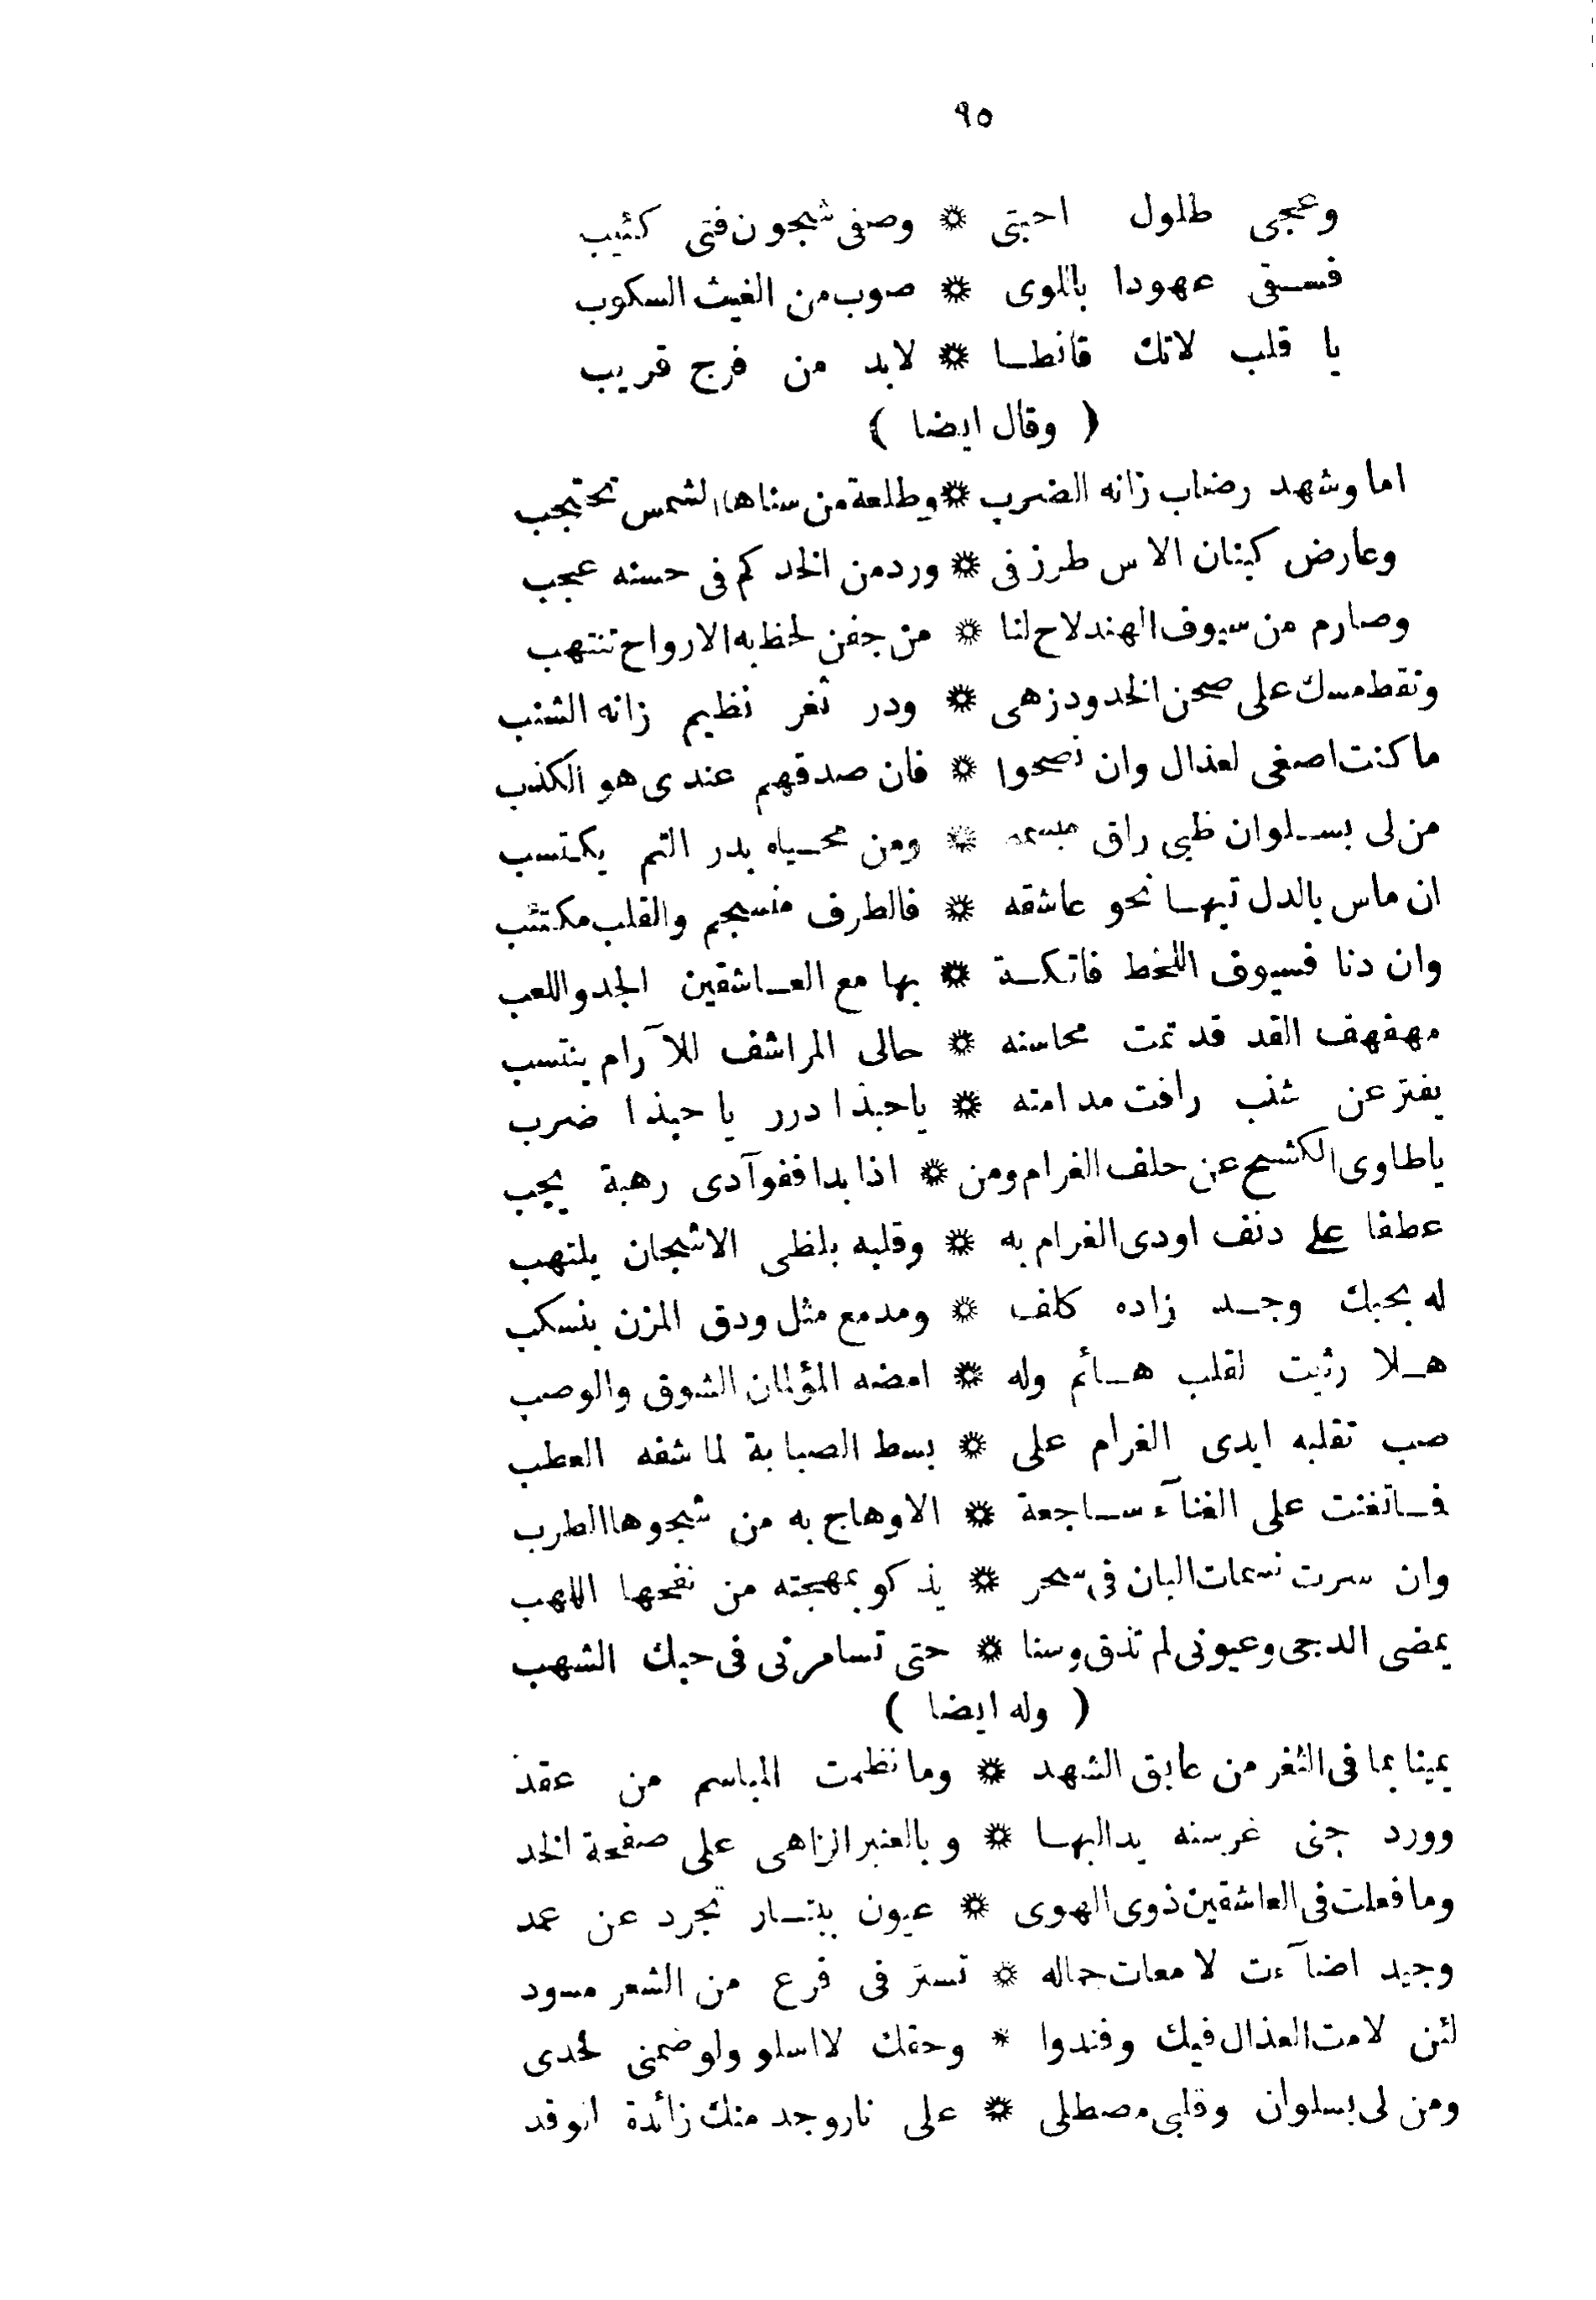 ٩٥
وعجى طلول احبتى * وصفى شجون فتى كئيب
فسقى عهودا باللوى * صوب من الغيث السكوب
يا قلب لاتك قانطا * لابد من فرج قريب
( وقال ايضا )
اما وشهد رضاب زانه الضرب * وطلعة من سناها الشمس تحتجب
وعارض كبنان الاس طرز فى * ورد من الخد كم فى حسنه عجب
وصارم من سيوف الهند لاح لنا * من جفن لحظ به الارواح تنتهب
ونقط مسك على صحن الخدود زهى * ودر ثغر نظيم زانه الشنب
ما كنت اصغى لعذال وان نصحوا * فان صدقهم عندى هو الكذب
من لى بسلوان ظبى راق مبسمه * ومن محياه بدر التم يكتسب
ان ماس بالدل تيها نحو عاشقه * فالطرف منسجم والقلب مكتئب
وان دنا فسيوف اللحظ فاتكة * بها مع العاشقين الجد واللعب
مهفهف القد قد تمت محاسنه * حالى المراشف للآرام ينتسب
يفتر عن شنب راقت مدامته * يا حبذا درر يا حبذا ضرب
يا طاوى الكشح عن حلف الغرام ومن * اذا بدا ففوآدى رهبة يجب
عطفا على دنف اودى الغرام به * وقلبه بلظى الاشجان يلتهب
له بحبك وجد زاده كلف * ومدمع مثل ودق المزن ينسكب
هلا رثيت لقلب هائم وله * امضه المؤلمان الشوق والوصب
صب تقلبه ايدى الغرام على * بسط الصبابة لما شفه العطب
فاتغنت على الغنآء ساجعة * الاوهاج به من شجوها الطرب
وان سرت نسمات البان فى سحر * يذكو بمهجته من نفحها اللهب
يمضى الدجى وعيونى لم تذق وسنا * حتى تسامرنى فى حبك الشهب
( وله ايضا )
يمينا بما فى الثغر من عابق الشهد * وما نظمت المباسم من عقد
وورد جنى غرسته يد البها * وبالعنبر الزاهى على صفحة الخد
وما فعلت فى العاشقين ذوى الهوى * عيون ببتار تجرد عن عمد
وجيد اضآءت لامعات جماله * تستر فى فرع من الشعر مسود
لئن لامت العذال فيك وفندوا * وحقك لا اسلو ولو ضمنى لحدى
ومن لى بسلوان وقلبى مصطلى * على نار وجد منك زائدة الوقد